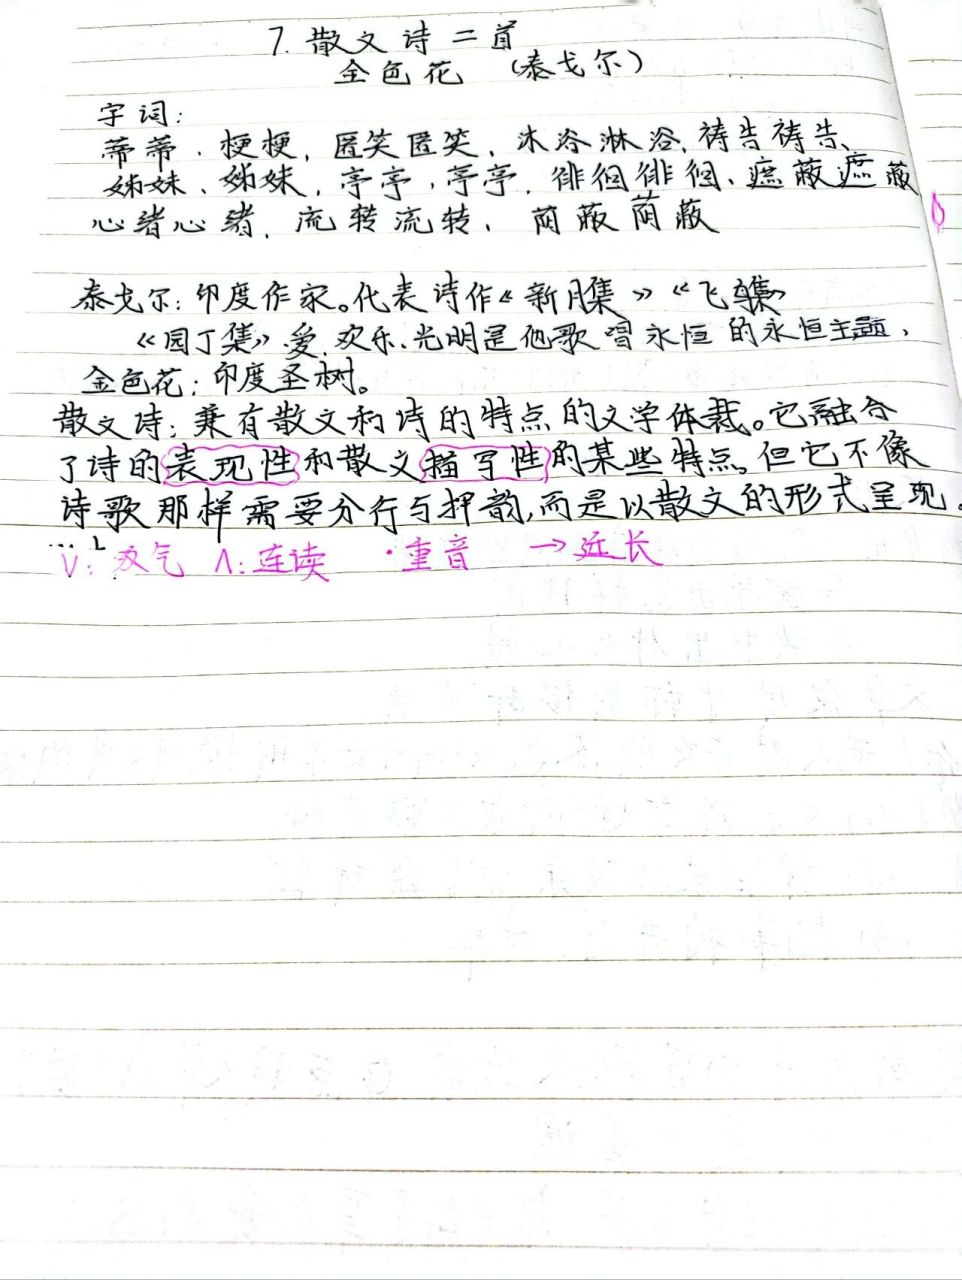 7. 散文诗二首
金色花 (泰戈尔)
字词:
蒂蒂、梗梗、匿笑匿笑、沐浴淋浴、祷告祷告、
姊妹、姊妹、亭亭、亭亭、徘徊徘徊、遮蔽遮蔽
心绪心绪、流转流转、荫蔽荫蔽
泰戈尔:印度作家。代表诗作《新月集》《飞鸟集》
《园丁集》.爱、欢乐、光明是他歌唱永恒的永恒主题,
金色花:印度圣树。
散文诗:兼有散文和诗的特点的文学体裁。它融合
了诗的表现性和散文描写性的某些特点。但它不像
诗歌那样需要分行与押韵,而是以散文的形式呈现。
V: 气 Λ:连读 ·重音 → 长